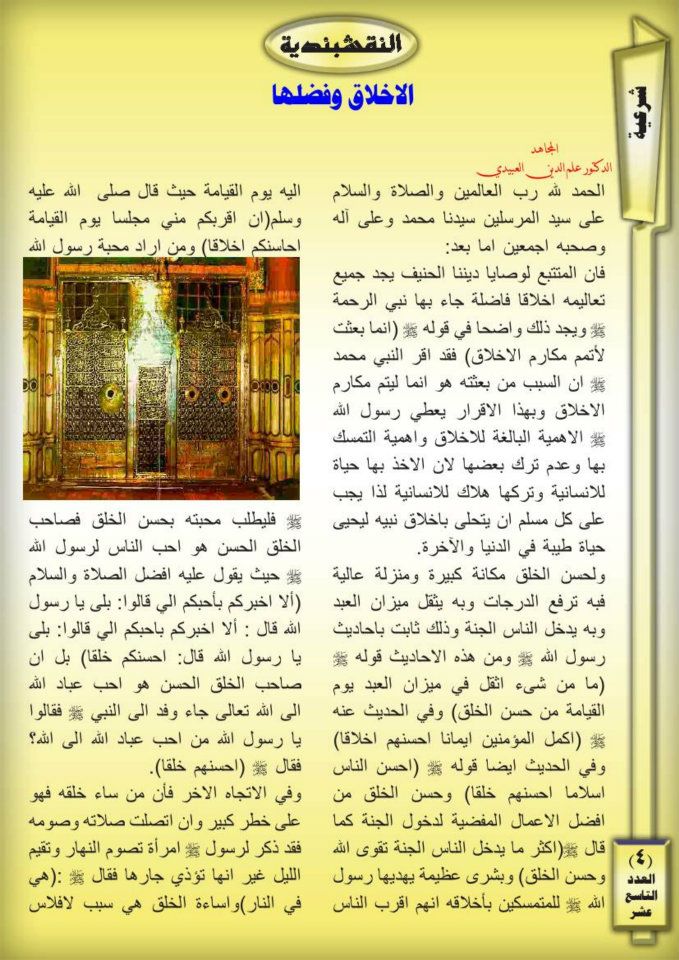 النقشبندية
الاخلاق وفضلها
شرعية
المجاهد
الدكتور علم الدين العبيدي
الحمد لله رب العالمين والصلاة والسلام
على سيد المرسلين سيدنا محمد وعلى آله
وصحبه اجمعين اما بعد:
فان المتتبع لوصايا ديننا الحنيف يجد جميع
تعاليمه اخلاقا فاضلة جاء بها نبي الرحمة
ﷺ ويجد ذلك واضحا في قوله ﷺ (انما بعثت
لأتمم مكارم الاخلاق) فقد اقر النبي محمد
ﷺ ان السبب من بعثته هو انما ليتم مكارم
الاخلاق وبهذا الاقرار يعطي رسول الله
ﷺ الاهمية البالغة للاخلاق واهمية التمسك
بها وعدم ترك بعضها لان الاخذ بها حياة
للانسانية وتركها هلاك للانسانية لذا يجب
على كل مسلم ان يتحلى باخلاق نبيه ليحيى
حياة طيبة في الدنيا والآخرة.
ولحسن الخلق مكانة كبيرة ومنزلة عالية
فبه ترفع الدرجات وبه يثقل ميزان العبد
وبه يدخل الناس الجنة وذلك ثابت باحاديث
رسول الله ﷺ ومن هذه الاحاديث قوله ﷺ
(ما من شىء اثقل في ميزان العبد يوم
القيامة من حسن الخلق) وفي الحديث عنه
ﷺ (اكمل المؤمنين ايمانا احسنهم اخلاقا)
وفي الحديث ايضا قوله ﷺ (احسن الناس
اسلاما احسنهم خلقا) وحسن الخلق من
افضل الاعمال المفضية لدخول الجنة كما
قال ﷺ(اكثر ما يدخل الناس الجنة تقوى الله
وحسن الخلق) وبشرى عظيمة يهديها رسول
الله ﷺ للمتمسكين بأخلاقه انهم اقرب الناس
اليه يوم القيامة حيث قال صلى الله عليه
وسلم(ان اقربكم مني مجلسا يوم القيامة
احاسنكم اخلاقا) ومن اراد محبة رسول الله
ﷺ فليطلب محبته بحسن الخلق فصاحب
الخلق الحسن هو احب الناس لرسول الله
ﷺ حيث يقول عليه افضل الصلاة والسلام
(ألا اخبركم بأحبكم الي قالوا: بلى يا رسول
الله قال : ألا اخبركم باحبكم الي قالوا: بلى
يا رسول الله قال: احسنكم خلقا) بل ان
صاحب الخلق الحسن هو احب عباد الله
الى الله تعالى جاء وفد الى النبي ﷺ فقالوا
يا رسول الله من احب عباد الله الى الله؟
فقال ﷺ (احسنهم خلقا).
وفي الاتجاه الاخر فأن من ساء خلقه فهو
على خطر كبير وان اتصلت صلاته وصومه
فقد ذكر لرسول ﷺ امرأة تصوم النهار وتقيم
الليل غير انها تؤذي جارها فقال ﷺ :(هي
في النار)واساءة الخلق هي سبب لافلاس
(٤)
العدد
التاسع
عشر